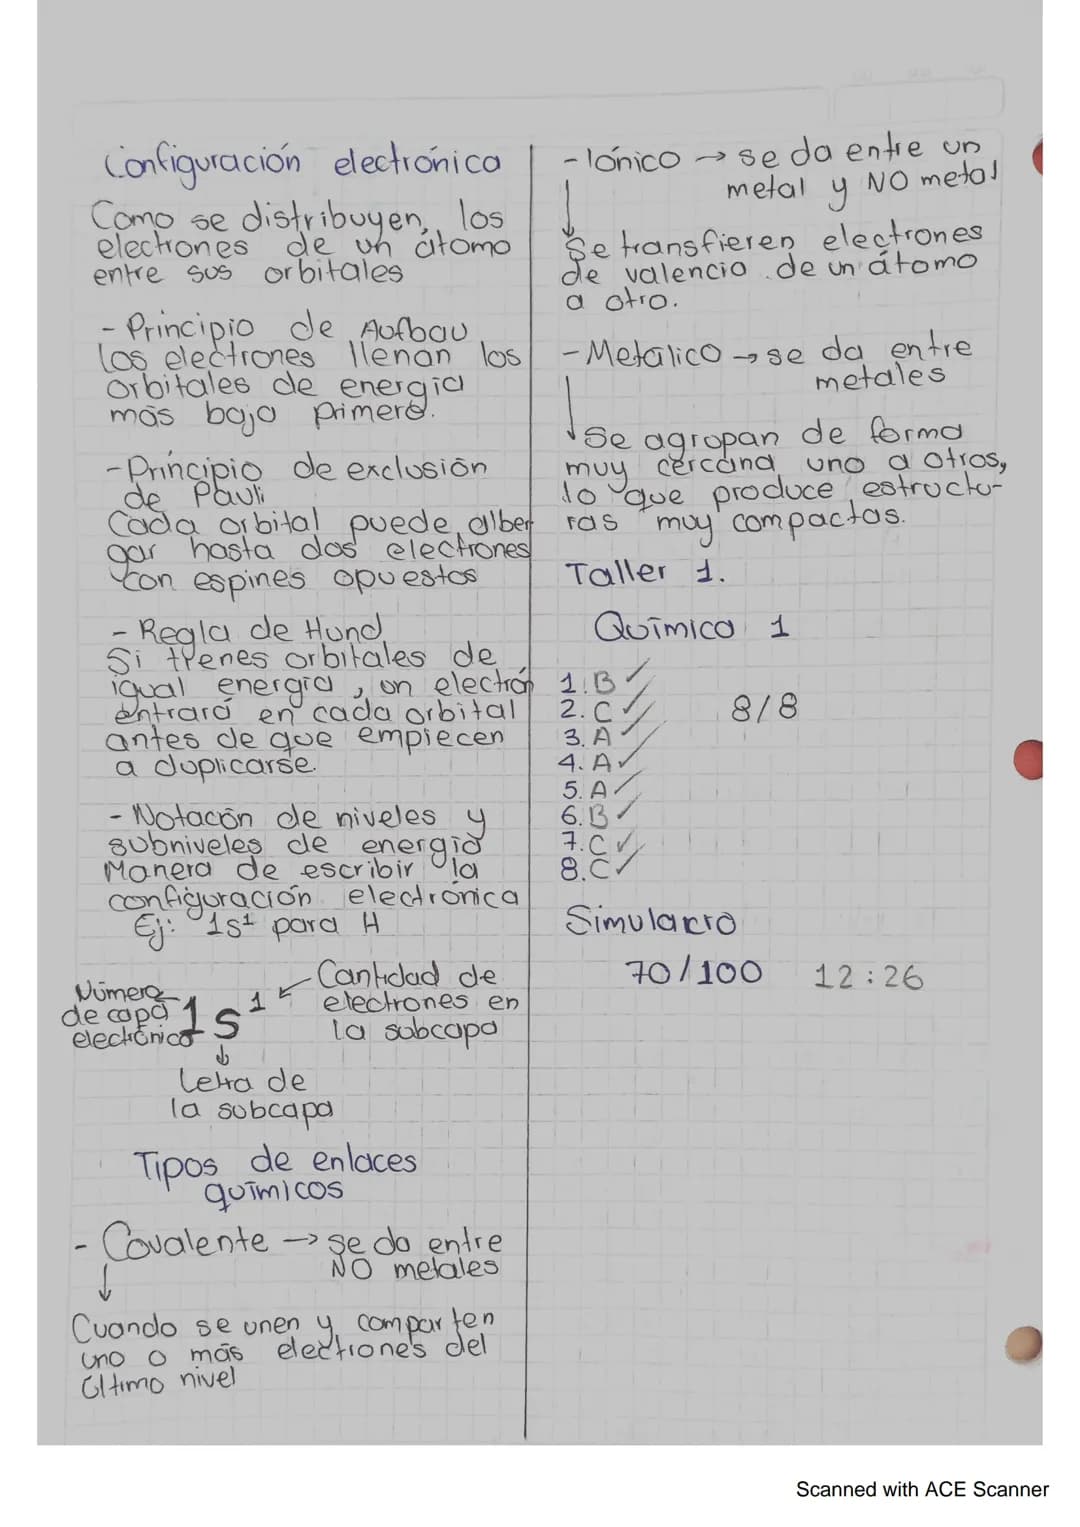 Configuración electrónica
Como se distribuyen los
electrones de un átomo
entre sus orbitales
- Principio de Aufbau
los electrones llenan los
orbitales de energía
más bajo primero.
- Principio de exclusión
de Pauli
Cada orbital puede alber
gar hasta dos electrones
con espines opuestos
- Regla de Hund
Si tienes orbitales de
igual energía, un electrón
entrará en cada orbital
antes de que empiecen
a duplicarse.
- Notación de niveles y
subniveles de energía
Manera de escribir la
configuración electrónica
Ej: 1s¹ para H
Número
de capa
electrónica
1s¹
Cantidad de
electrones en
la subcapa
Letra de
la subcapa
Tipos de enlaces
químicos
- Covalente → se da entre
NO metales
Cuando se unen y comparten
uno o más electrones del
último nivel
- Iónico → se da entre un
metal y NO metal
Se transfieren electrones
de valencia de un átomo
a otro.
- Metálico → se da entre
metales
Se agrupan de forma
muy cercana uno a otros,
lo que produce estructu-
ras muy compactas.
Taller 1.
Química 1
1. B ✓
2. C ✓
8/8
3. A ✓
4. A ✓
5. A ✓
6. B ✓
7. C ✓
8. C ✓
Simulacro
70/100 12:26
Scanned with ACE Scanner